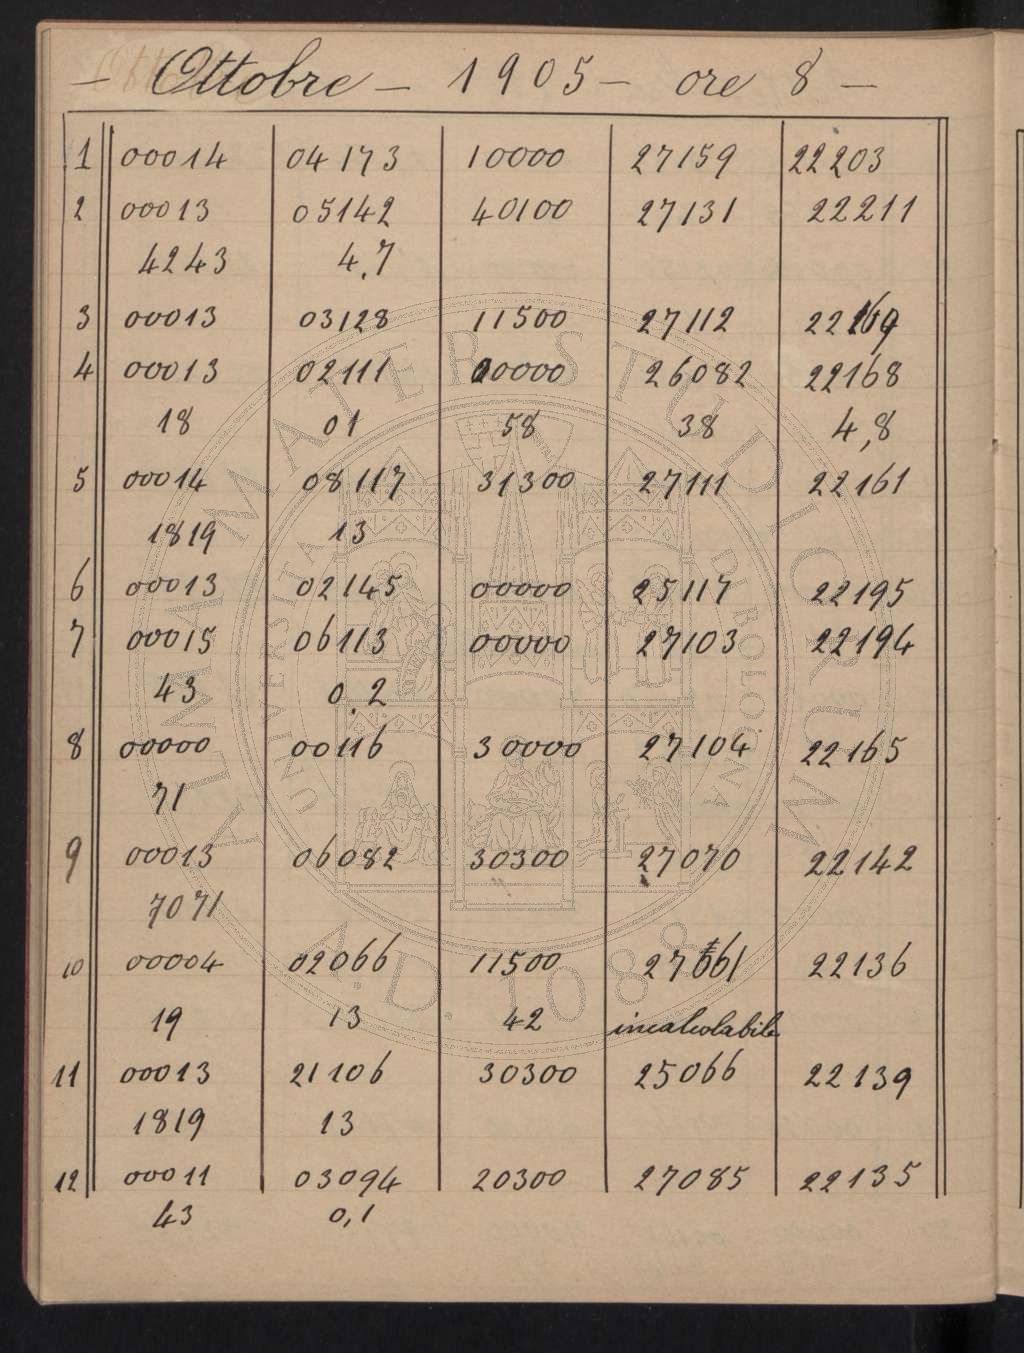 – Ottobre – 1905 – ore 8 –
1 00014 04173 10000 27159 22203
2 00013 05142 40100 27131 22211
4243 4,7
3 00013 03128 11500 27112 22169
4 00013 02111 00000 26082 22168
18 01 58 38 4,8
5 00014 08117 31300 27111 22161
1819 13
6 00013 02145 00000 25117 22195
7 00015 06113 00000 27103 22194
43 0,2
8 00000 00116 30000 27104 22165
71
9 00013 06082 30300 27070 22142
7071
10 00004 02066 11500 22136
19 13 42 incalcolabile
11 00013 21106 30300 25066 22139
1819 13
12 00011 03094 20300 27085 22135
43 0,1
ALMA MATER STUDIORUM
UNIVERSITA DI BOLOGNA
A.D. 1088